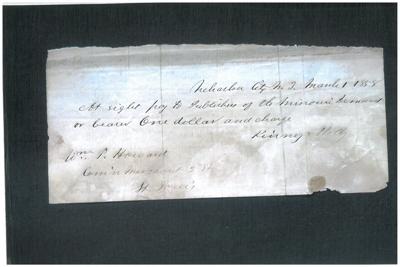 Nebraska City N. T. March 1 1858
At sight pay to Publisher of the Missouri Democrat
or bearer One dollar and charge
Kinney &
Wm. P. Howard
Com'n Merchant
St. Louis